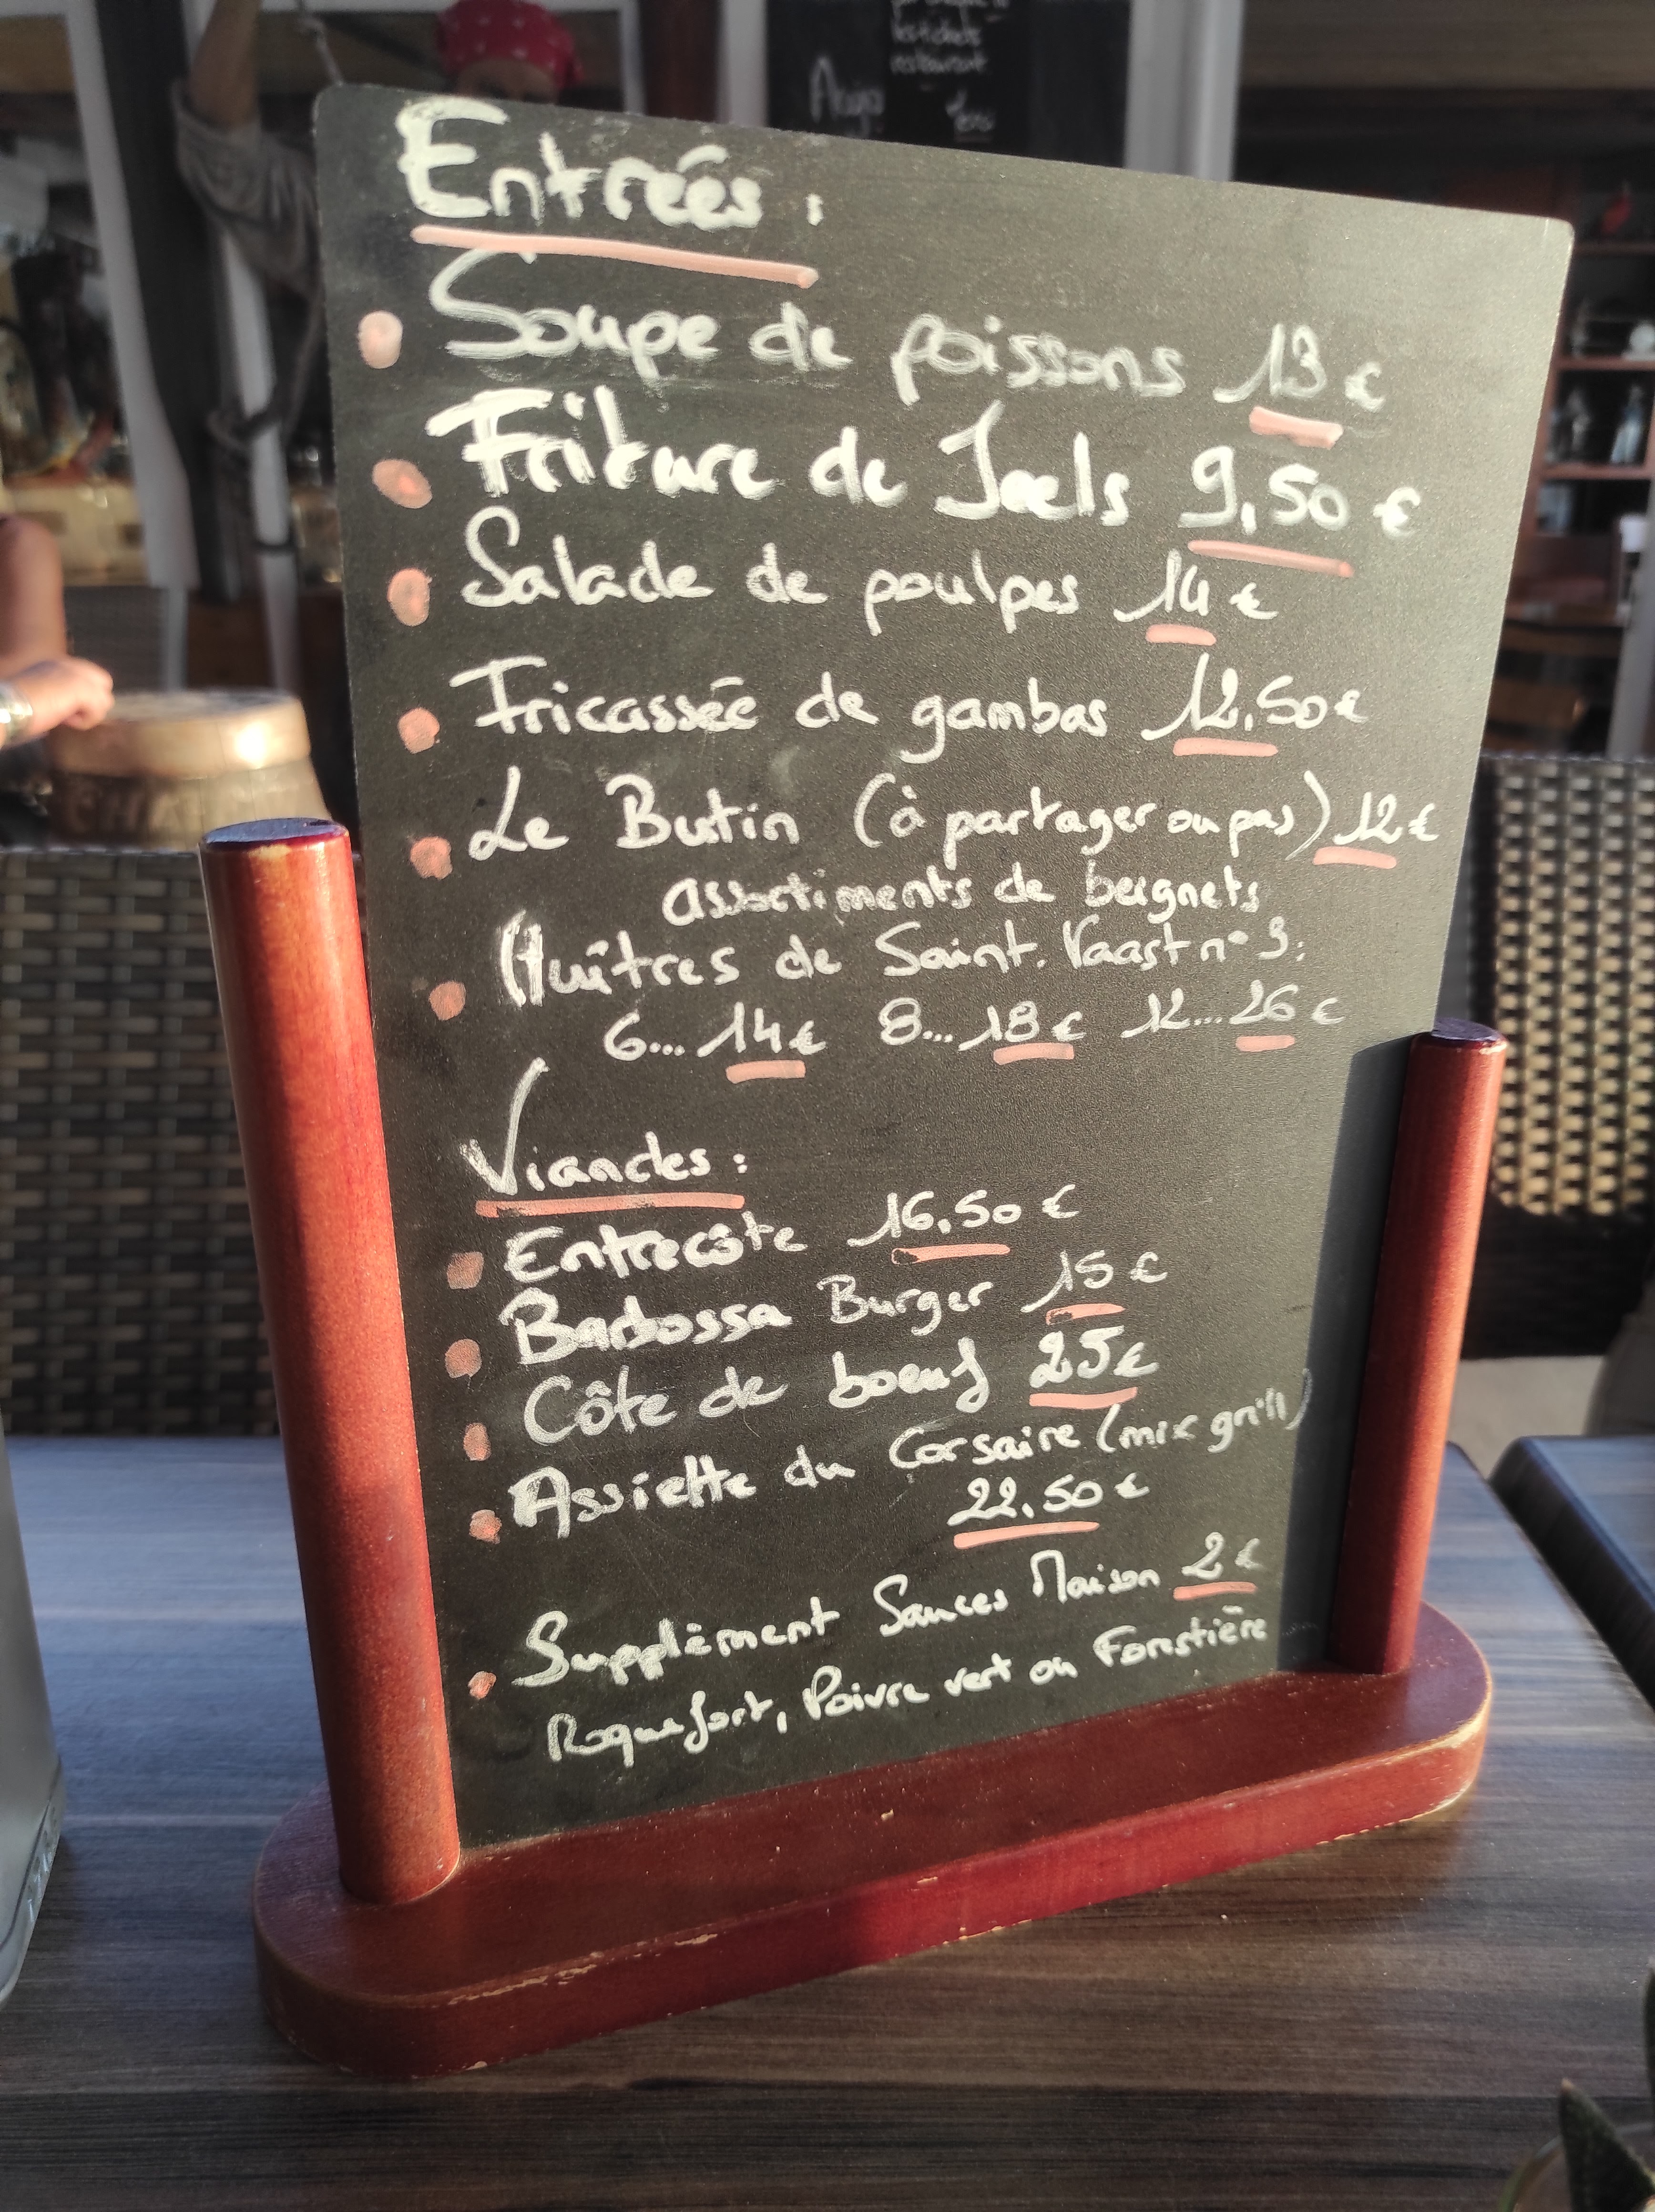 les tickets
restaurant
Entrées :
Soupe de poissons 13 €
Friture de Joels 9,50 €
Salade de poulpes 14 €
Fricassée de gambas 12.50 €
Le Butin (à partager ou pas) 12 €
assortiments de beignets
Huîtres de Saint. Vaast n° 3 :
6... 14 € 8... 18 € 12... 26 €
Viandes :
Entrecôte 16.50 €
Barbossa Burger 15 €
Côte de boeuf 25 €
Assiette du Corsaire (mix grill)
22.50 €
Supplément Sauces Maison 2 €
Roquefort, Poivre vert ou Forestière